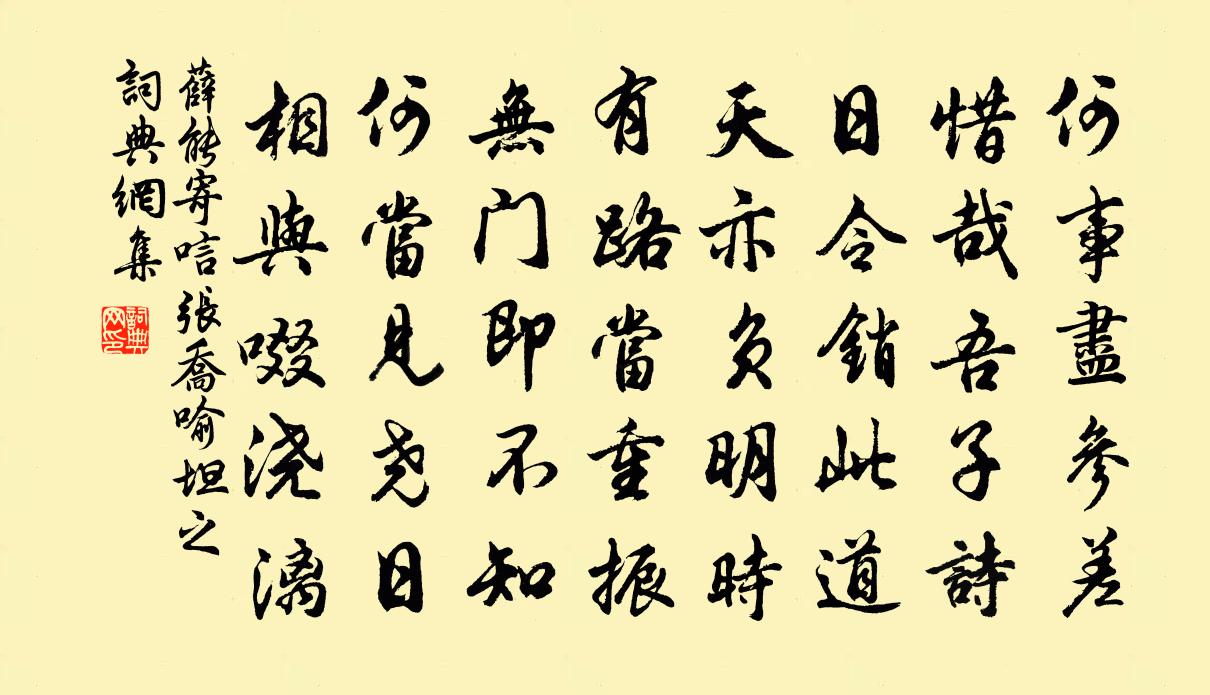 何事盡參差
惜哉吾子詩
日令銷此道
天亦負明時
有路當重振
無門即不知
何當見堯日
相與啜澆漓
薛能寄唁張喬喻坦之
詞典網集
詞典网印